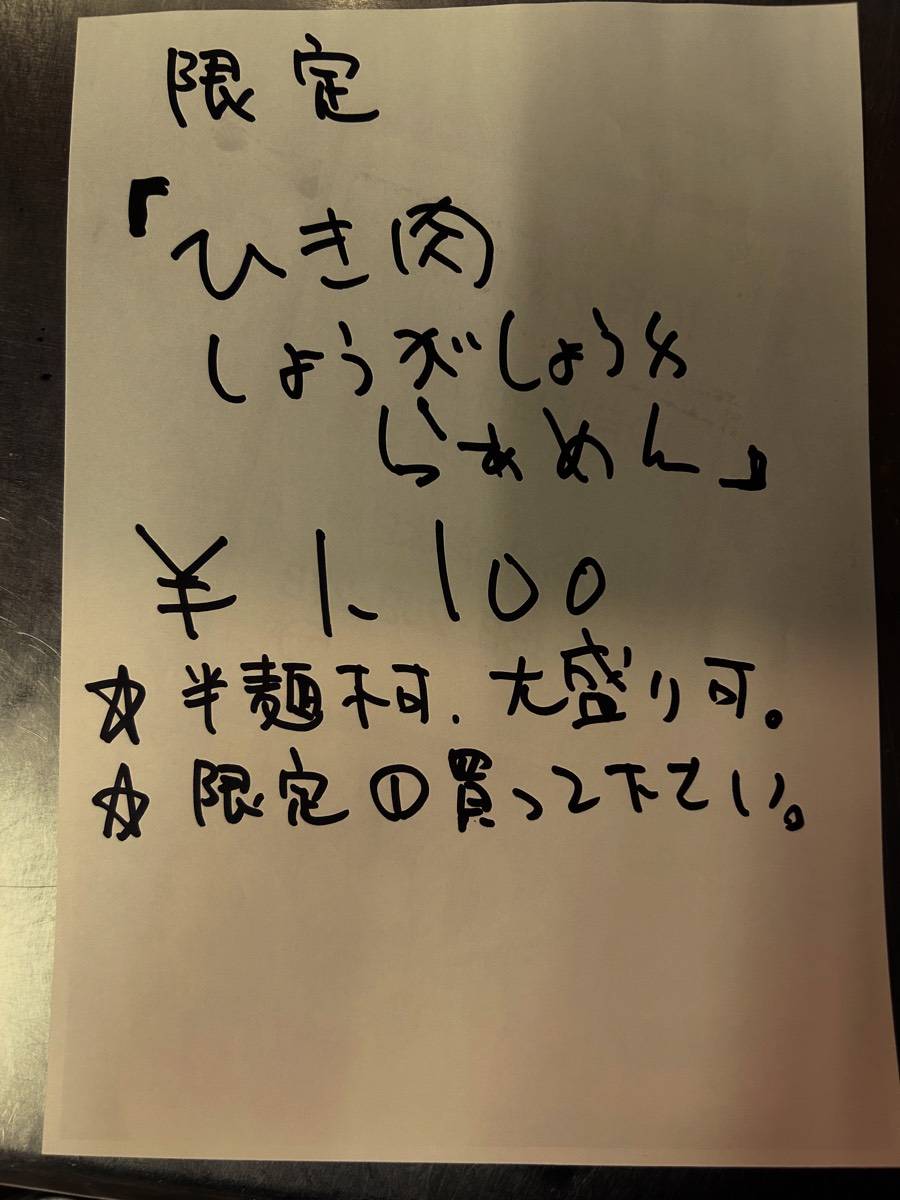 限定
「ひき肉
しょうがしょうゆ
らぁめん」
¥1,100
☆半麺不可、大盛り可。
☆限定①買って下さい。